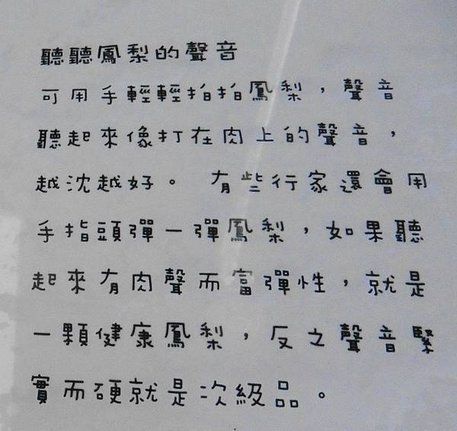 聽聽鳳梨的聲音
可用手輕輕拍拍鳳梨，聲音
聽起來像打在肉上的聲音，
越沈越好。 有些行家還會用
手指頭彈一彈鳳梨，如果聽
起來有肉聲而富彈性，就是
一顆健康鳳梨，反之聲音緊
實而硬就是次級品。